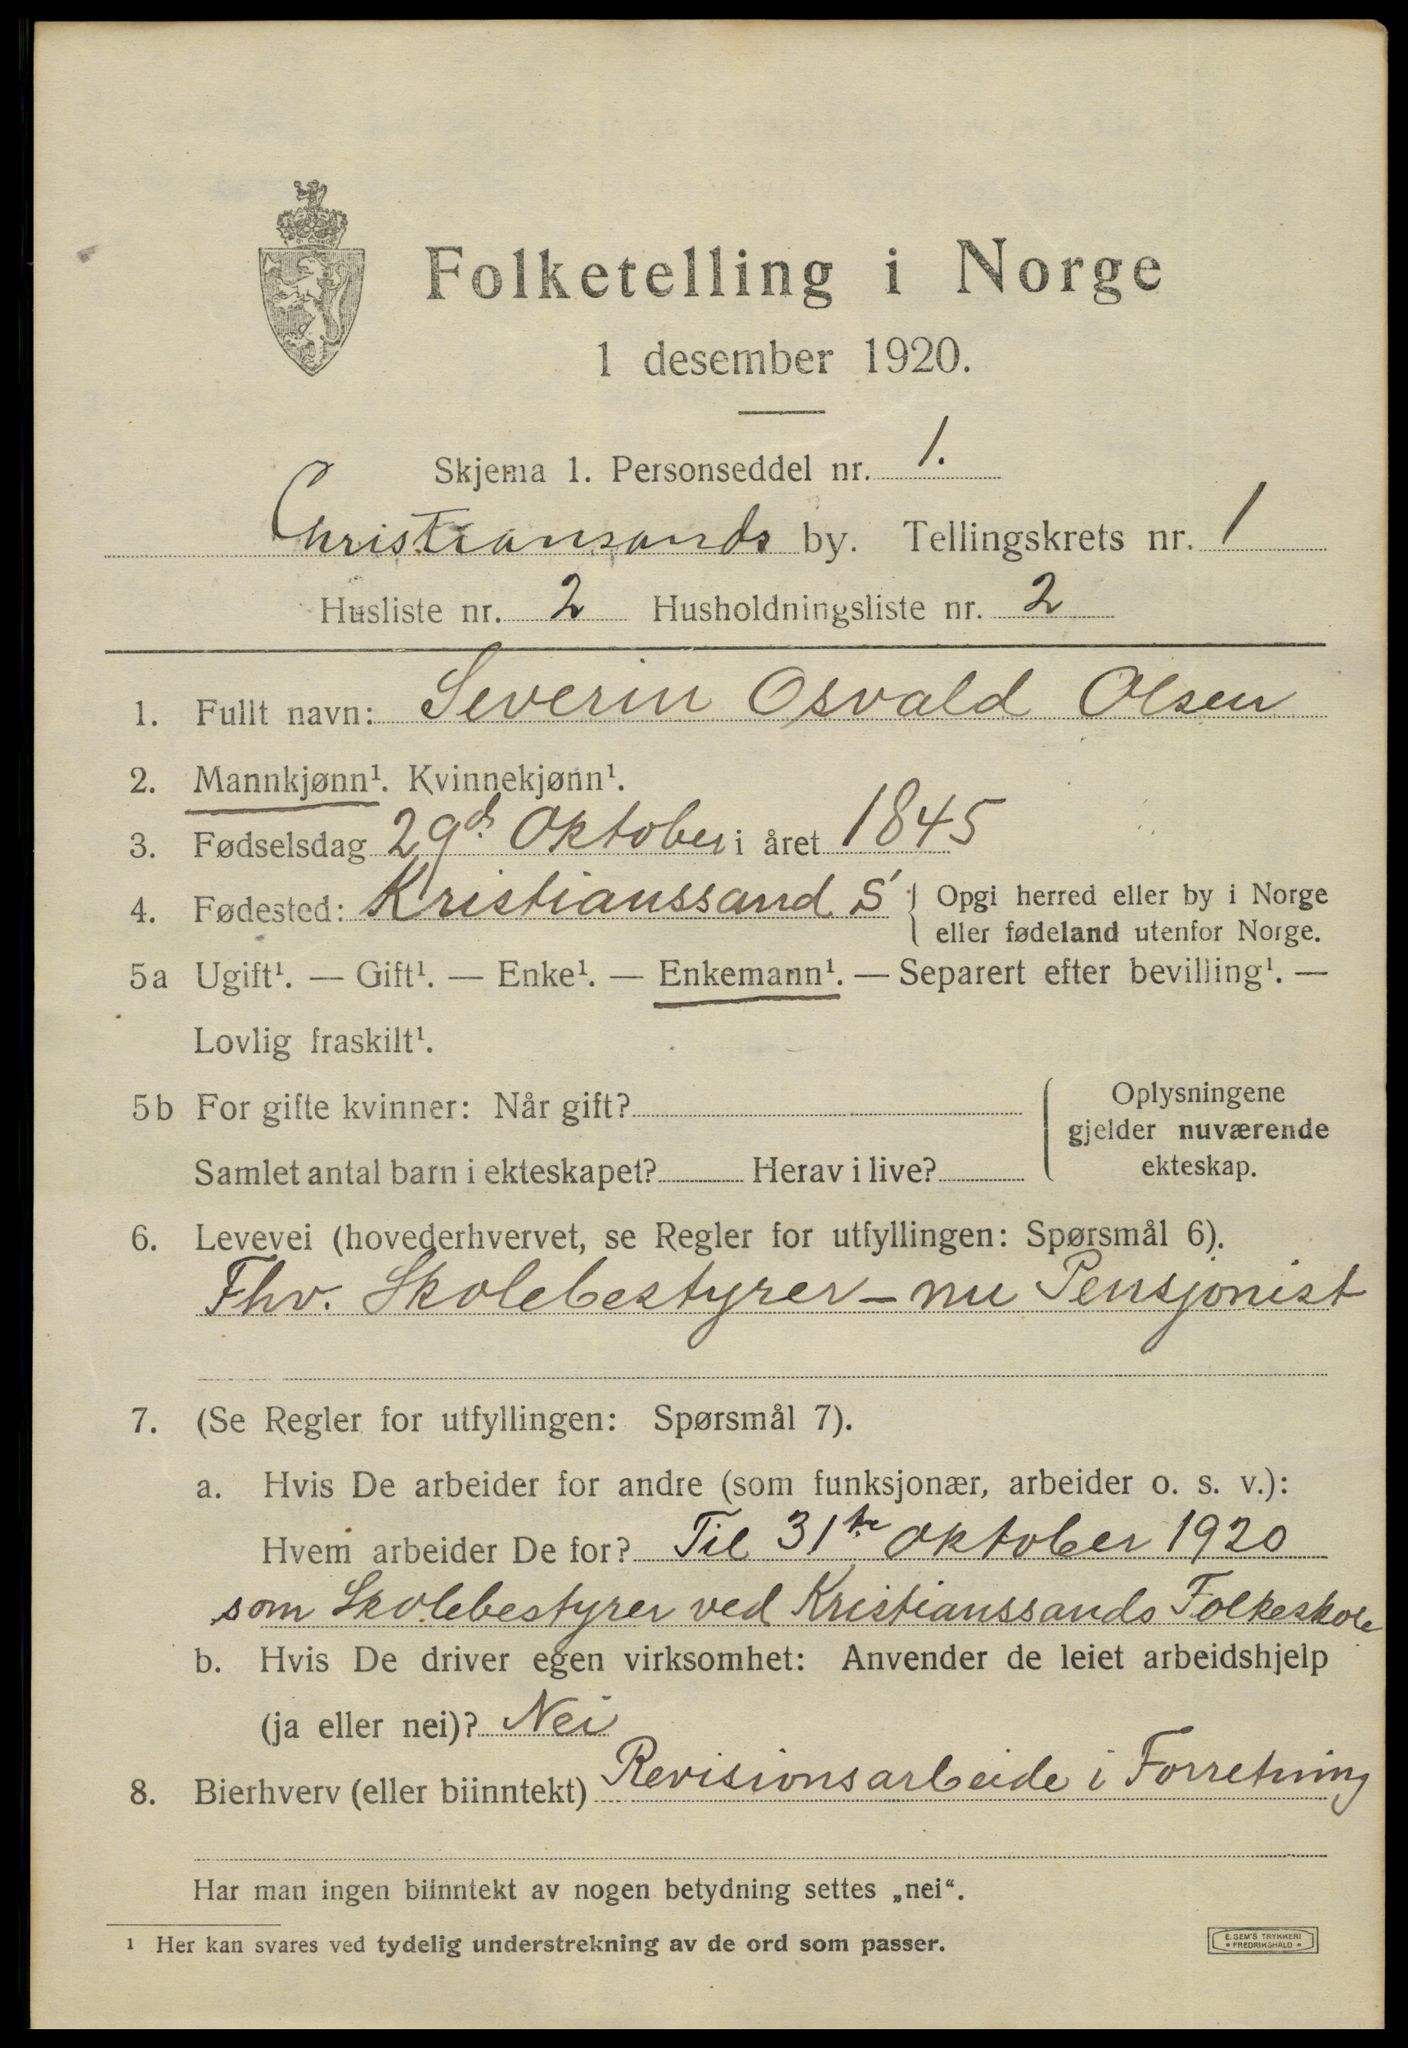 Folketelling i Norge
1 desember 1920.
Skjema 1. Personseddel nr. 1.
Christiansands by. Tellingskrets nr. 1
Husliste nr. 2 Husholdningsliste nr. 2
1. Fullt navn: Severin Osvald Olsen
2. Mannkjønn¹. Kvinnekjønn¹.
3. Fødselsdag 29de Oktober i året 1845
4. Fødested: Kristianssand S { Opgi herred eller by i Norge
eller fødeland utenfor Norge.
5a Ugift¹. — Gift¹. — Enke¹. — Enkemann¹. — Separert efter bevilling¹. —
Lovlig fraskilt¹.
5b For gifte kvinner: Når gift? { Oplysningene
gjelder nuværende
Samlet antal barn i ekteskapet? Herav i live? ekteskap.
6. Levevei (hovederhvervet, se Regler for utfyllingen: Spørsmål 6).
Fhv. Skolebestyrer – nu Pensjonist
7. (Se Regler for utfyllingen: Spørsmål 7).
a. Hvis De arbeider for andre (som funksjonær, arbeider o. s. v.):
Hvem arbeider De for? Til 31te Oktober 1920
som Skolebestyrer ved Kristianssands Folkeskole
b. Hvis De driver egen virksomhet: Anvender de leiet arbeidshjelp
(ja eller nei)? Nei
8. Bierhverv (eller biinntekt) Revisionsarbeide i Forretning
Har man ingen biinntekt av nogen betydning settes „nei“.
¹ Her kan svares ved tydelig understrekning av de ord som passer.
E. SEM'S TRYKKERI
• FREDRIKSHALD •